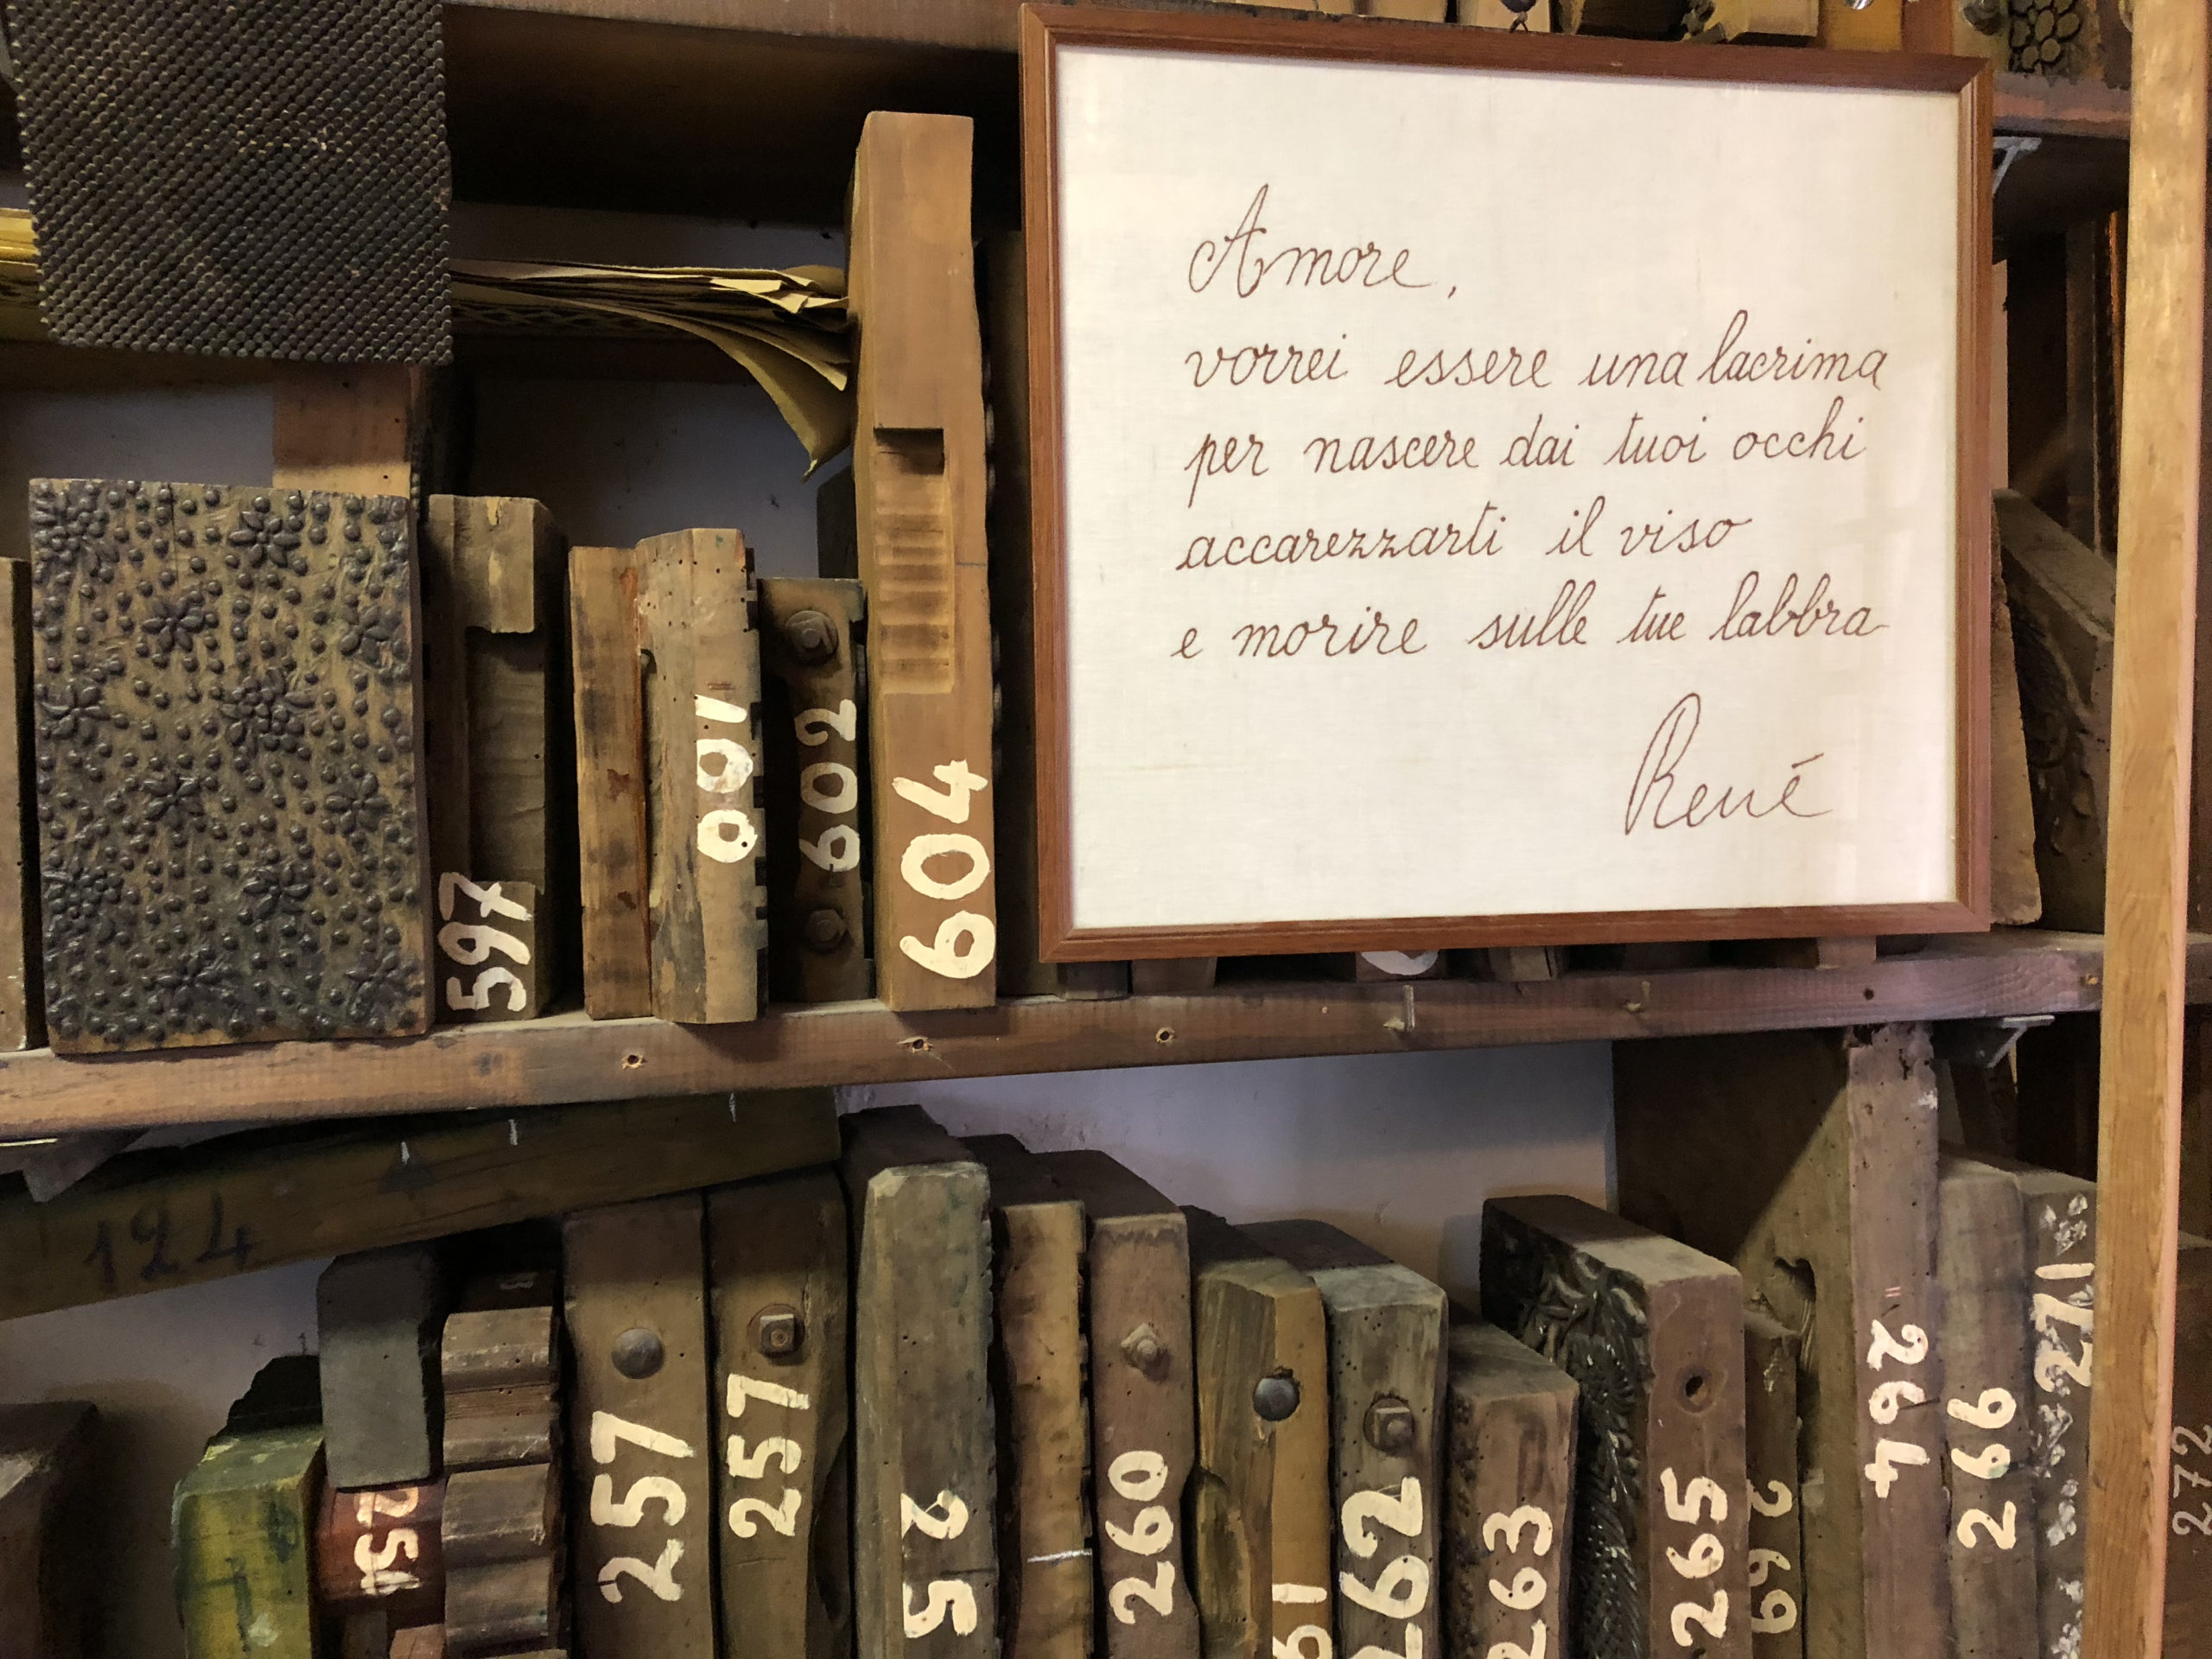 Amore,
vorrei essere una lacrima
per nascere dai tuoi occhi
accarezzarti il viso
e morire sulle tue labbra
René
597
001
602
604
124
251
257
257
25
260
61
262
263
265
269
264
266
271
272